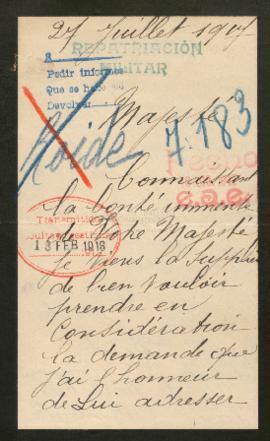 27 Juillet 1917
REPATRIACIÓN
MILITAR
Pedir informes
Que se hace
Devolver
Majesté
7.183
Hecho
Connaissant
la bonté immense
de Votre Majesté
Transmitido
13 FEB 1918
je viens la supplier
de bien vouloir
prendre en
Considération
la demande que
j'ai l'honneur
de Lui adresser